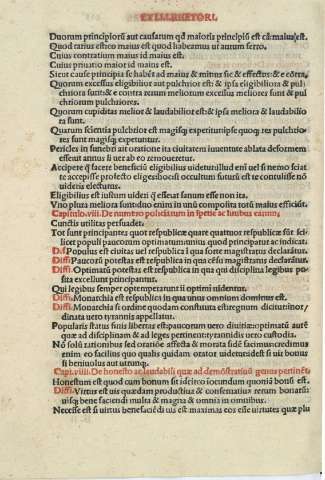 EX LI. I. RHETORI.
Duorum principiorū aut causarum qđ maioris principiū est & causa maius est.
Quod rarius est eo maius est quod habeamus ut aurum ferro.
Cuius contrarium maius id maius est.
Cuius priuatio maior id maius est.
Sicut cause principia se habēt ad maius & minus sic & effectus: & e cōtra.
Quorum excessus eligibilior aut pulchrior est & ipsa eligibiliora & pul
chriora sunt: & e contra rerum meliorum excessus meliores sunt & pul
chriorum pulchriores.
Quorum cupiditas melior & laudabilior est: & ipsa meliora & laudabilio
ra sunt.
Quarum scientia pulchrior est magisq; expetitur: ipse quoq; res pulchrio
res sunt magisq; expetuntur.
Pericles in funebri ait oratione ita ciuitatem iuuentute ablata deformem
esse: ut annus si uer ab eo remoueretur.
Accipere q̄ facere beneficiū eligibilius uidetur: illud em̄ uel si nemo sciat
te accepisse profecto eliges: hoc si occultum futurū est te contulisse nō
uideris electurus.
Eligibilius est iustum uideri q̄ esse: at sanum esse non ita.
Vno plura meliora sunt: do enim in uno composita totū maius efficiūt.
Capitulo. viii. De numero politiarum in specie ac finibus earum.
Cunctis utilitas persuadet.
Tot sunt principantur quot respublicæ quare quattuor respublicæ sūt sci
licet populi paucorum optimatum unius. quod principatur ac indicat.
Diffi. Populus est ciuitas: uel respublica ī qua sorte magistratus declarātur.
Diffi. Paucorū potestas est respublica in qua census magistratus declarātur.
Diffi. Optimatū potestas est respublica in qua qui disciplina legibus po
sita excellunt principantur.
Qui legibus semper obtemperarunt ii optimi uidentur.
Diffi. Monarchia est respublica in qua unus omnium dominus est.
Diffi. Monarchia si ordine quodam constituta est: regnum dicitur: inor/
dinata uero tyrannis appellatur.
Popularis status finis libertas est: paucorum uero diuitiæ: optimatū autē
quæ ad disciplinam & ad leges pertinent: tyrannidis uero custodia.
Nō solū rationibus sed oratiōe affecta & morata fidē facimus: credimus
enim eo facilius quo qualis quidam orator uidetur: idest si uir bonus
si beniuolus aut utrunq;.
Capi. viiii. De honesto ac laudabili quæ ad demōstratiuū genus pertinēt.
Honestum est quod cum bonum sit id circo iocundum quoniā bonū est.
Diffi. Virtus est uis quædam productiua & conseruatiua rerum bonarū:
uisq; bene faciendi multa & magna & omnia in omnibus.
Necesse est si uirtus beneficiēdi uis est maximas eas esse uirtutes quæ plu